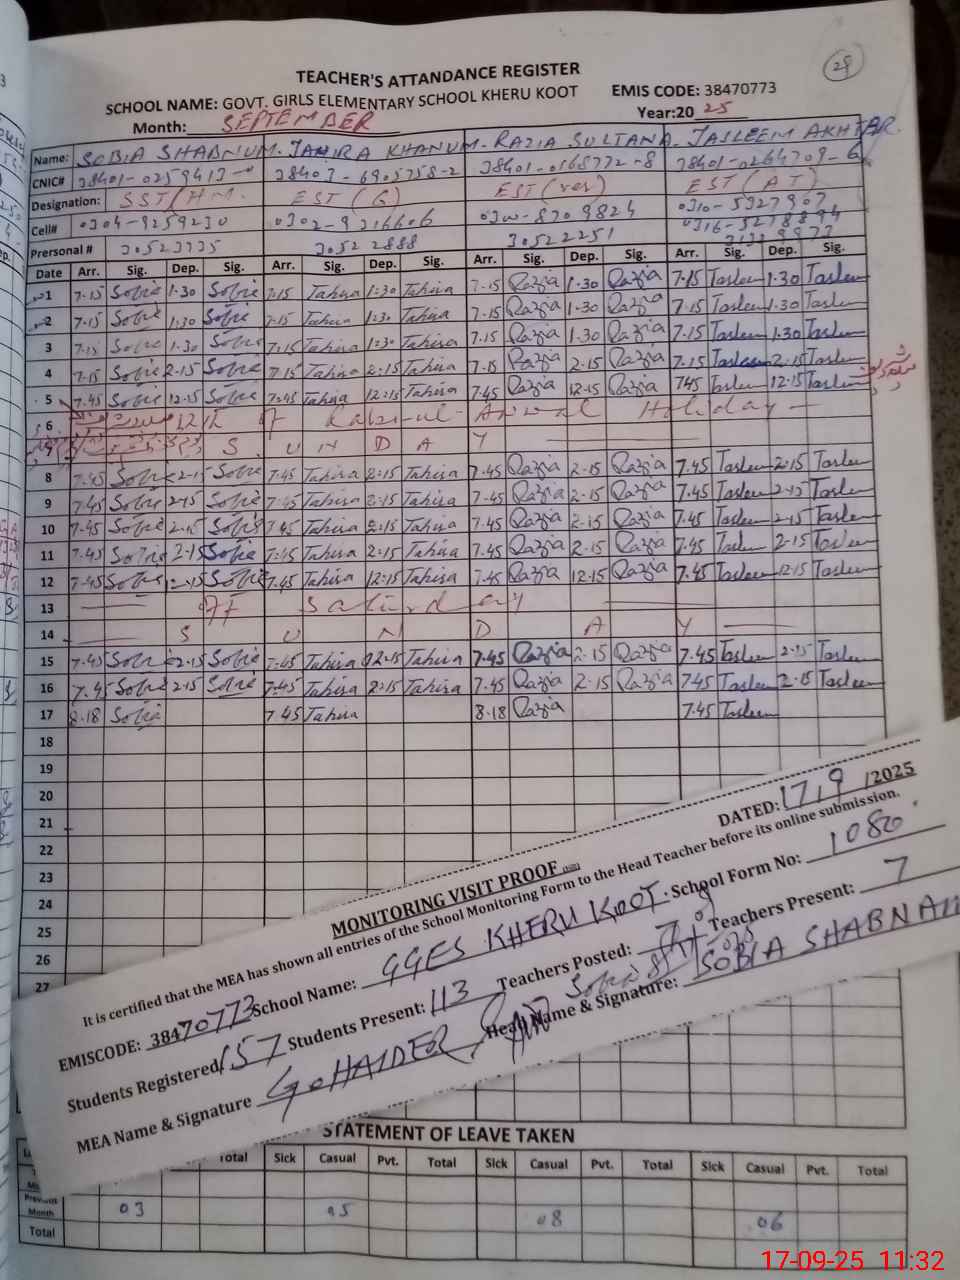 29
TEACHER'S ATTANDANCE REGISTER
SCHOOL NAME: GOVT. GIRLS ELEMENTARY SCHOOL KHERU KOOT EMIS CODE: 38470773
Month: SEPTEMBER Year:2025
Name: SOBIA SHABNUM. TAHIRA KHANUM. RAZIA SULTANA. TASLEEM AKHTAR.
CNIC# 38403-6905758-2 38401-0168772-8 38401-0264709-6
Designation: SST/HM. EST (G) EST (ver) EST (AT)
Cell# 0304-9259230 0302-9316606 0300-8709824 0310-5327907
0316-5278894
Prersonal # 30523735 30522888 30522251
Date Arr. Sig. Dep. Sig. Arr. Sig. Dep. Sig. Arr. Sig. Dep. Sig. Arr. Sig. Dep. Sig.
1 7.15 Sobie 1.30 Sobie 7.15 Tahira 1:30 Tahira 7.15 Razia 1.30 Razia 7.15 Tasleem 1.30 Tasleem
2 7.15 Sobie 1.30 Sobie 7.15 Tahira 1:30 Tahira 7.15 Razia 1.30 Razia 7.15 Tasleem 1.30 Tasleem
3 7.15 Sobie 1.30 Sobie 7.15 Tahira 1:30 Tahira 7.15 Razia 1.30 Razia 7.15 Tasleem 1.30 Tasleem
4 7.15 Sobie 2.15 Sobie 7.15 Tahira 2:15 Tahira 7.15 Razia 2.15 Razia 7.15 Tasleem 2.15 Tasleem
5 7.45 Sobie 12.15 Sobie 7.45 Tahira 12:15 Tahira 7.45 Razia 12.15 Razia 745 Tasleem 12.15 Tasleem
6 12th of Rabi-ul-Awwal Holiday
7 S U N D A Y
8 7.45 Sobie 2.15 Sobie 7.45 Tahira 2:15 Tahira 7.45 Razia 2.15 Razia 7.45 Tasleem 2.15 Tasleem
9 7.45 Sobie 2.15 Sobie 7.45 Tahira 2:15 Tahira 7.45 Razia 2.15 Razia 7.45 Tasleem 2.15 Tasleem
10 7.45 Sobie 2.15 Sobie 7.45 Tahira 2:15 Tahira 7.45 Razia 2.15 Razia 7.45 Tasleem 2.15 Tasleem
11 7.45 Sobie 2.15 Sobie 7.45 Tahira 2:15 Tahira 7.45 Razia 2.15 Razia 7.45 Tasleem 2.15 Tasleem
12 7.45 Sobie 12.15 Sobie 7.45 Tahira 12:15 Tahira 7.45 Razia 12.15 Razia 7.45 Tasleem 12.15 Tasleem
13 Off Saturday
14 S U N D A Y
15 7.45 Sobie 2.15 Sobie 7.45 Tahira 2:15 Tahira 7.45 Razia 2.15 Razia 7.45 Tasleem 2.15 Tasleem
16 7.45 Sobie 2.15 Sobie 7.45 Tahira 2:15 Tahira 7.45 Razia 2.15 Razia 7.45 Tasleem 2.15 Tasleem
17 8.18 Sobie 7.45 Tahira 8.18 Razia 7.45 Tasleem
18
19
20
21
22
23
24
25
26
27
MONITORING VISIT PROOF DATED: 17/9/2025
It is certified that the MEA has shown all entries of the School Monitoring Form to the Head Teacher before its online submission.
EMISCODE: 38470773 School Name: GGES KHERU KOOT. School Form No: 1080
Students Registered 157 Students Present: 113 Teachers Posted: Teachers Present: 7
MEA Name & Signature G. HAIDER Head Name & Signature: SOBIA SHABNAM
STATEMENT OF LEAVE TAKEN
Total Sick Casual Pvt. Total Sick Casual Pvt. Total Sick Casual Pvt. Total
Previous Month 03 05 08 06
Total
17-09-25 11:32